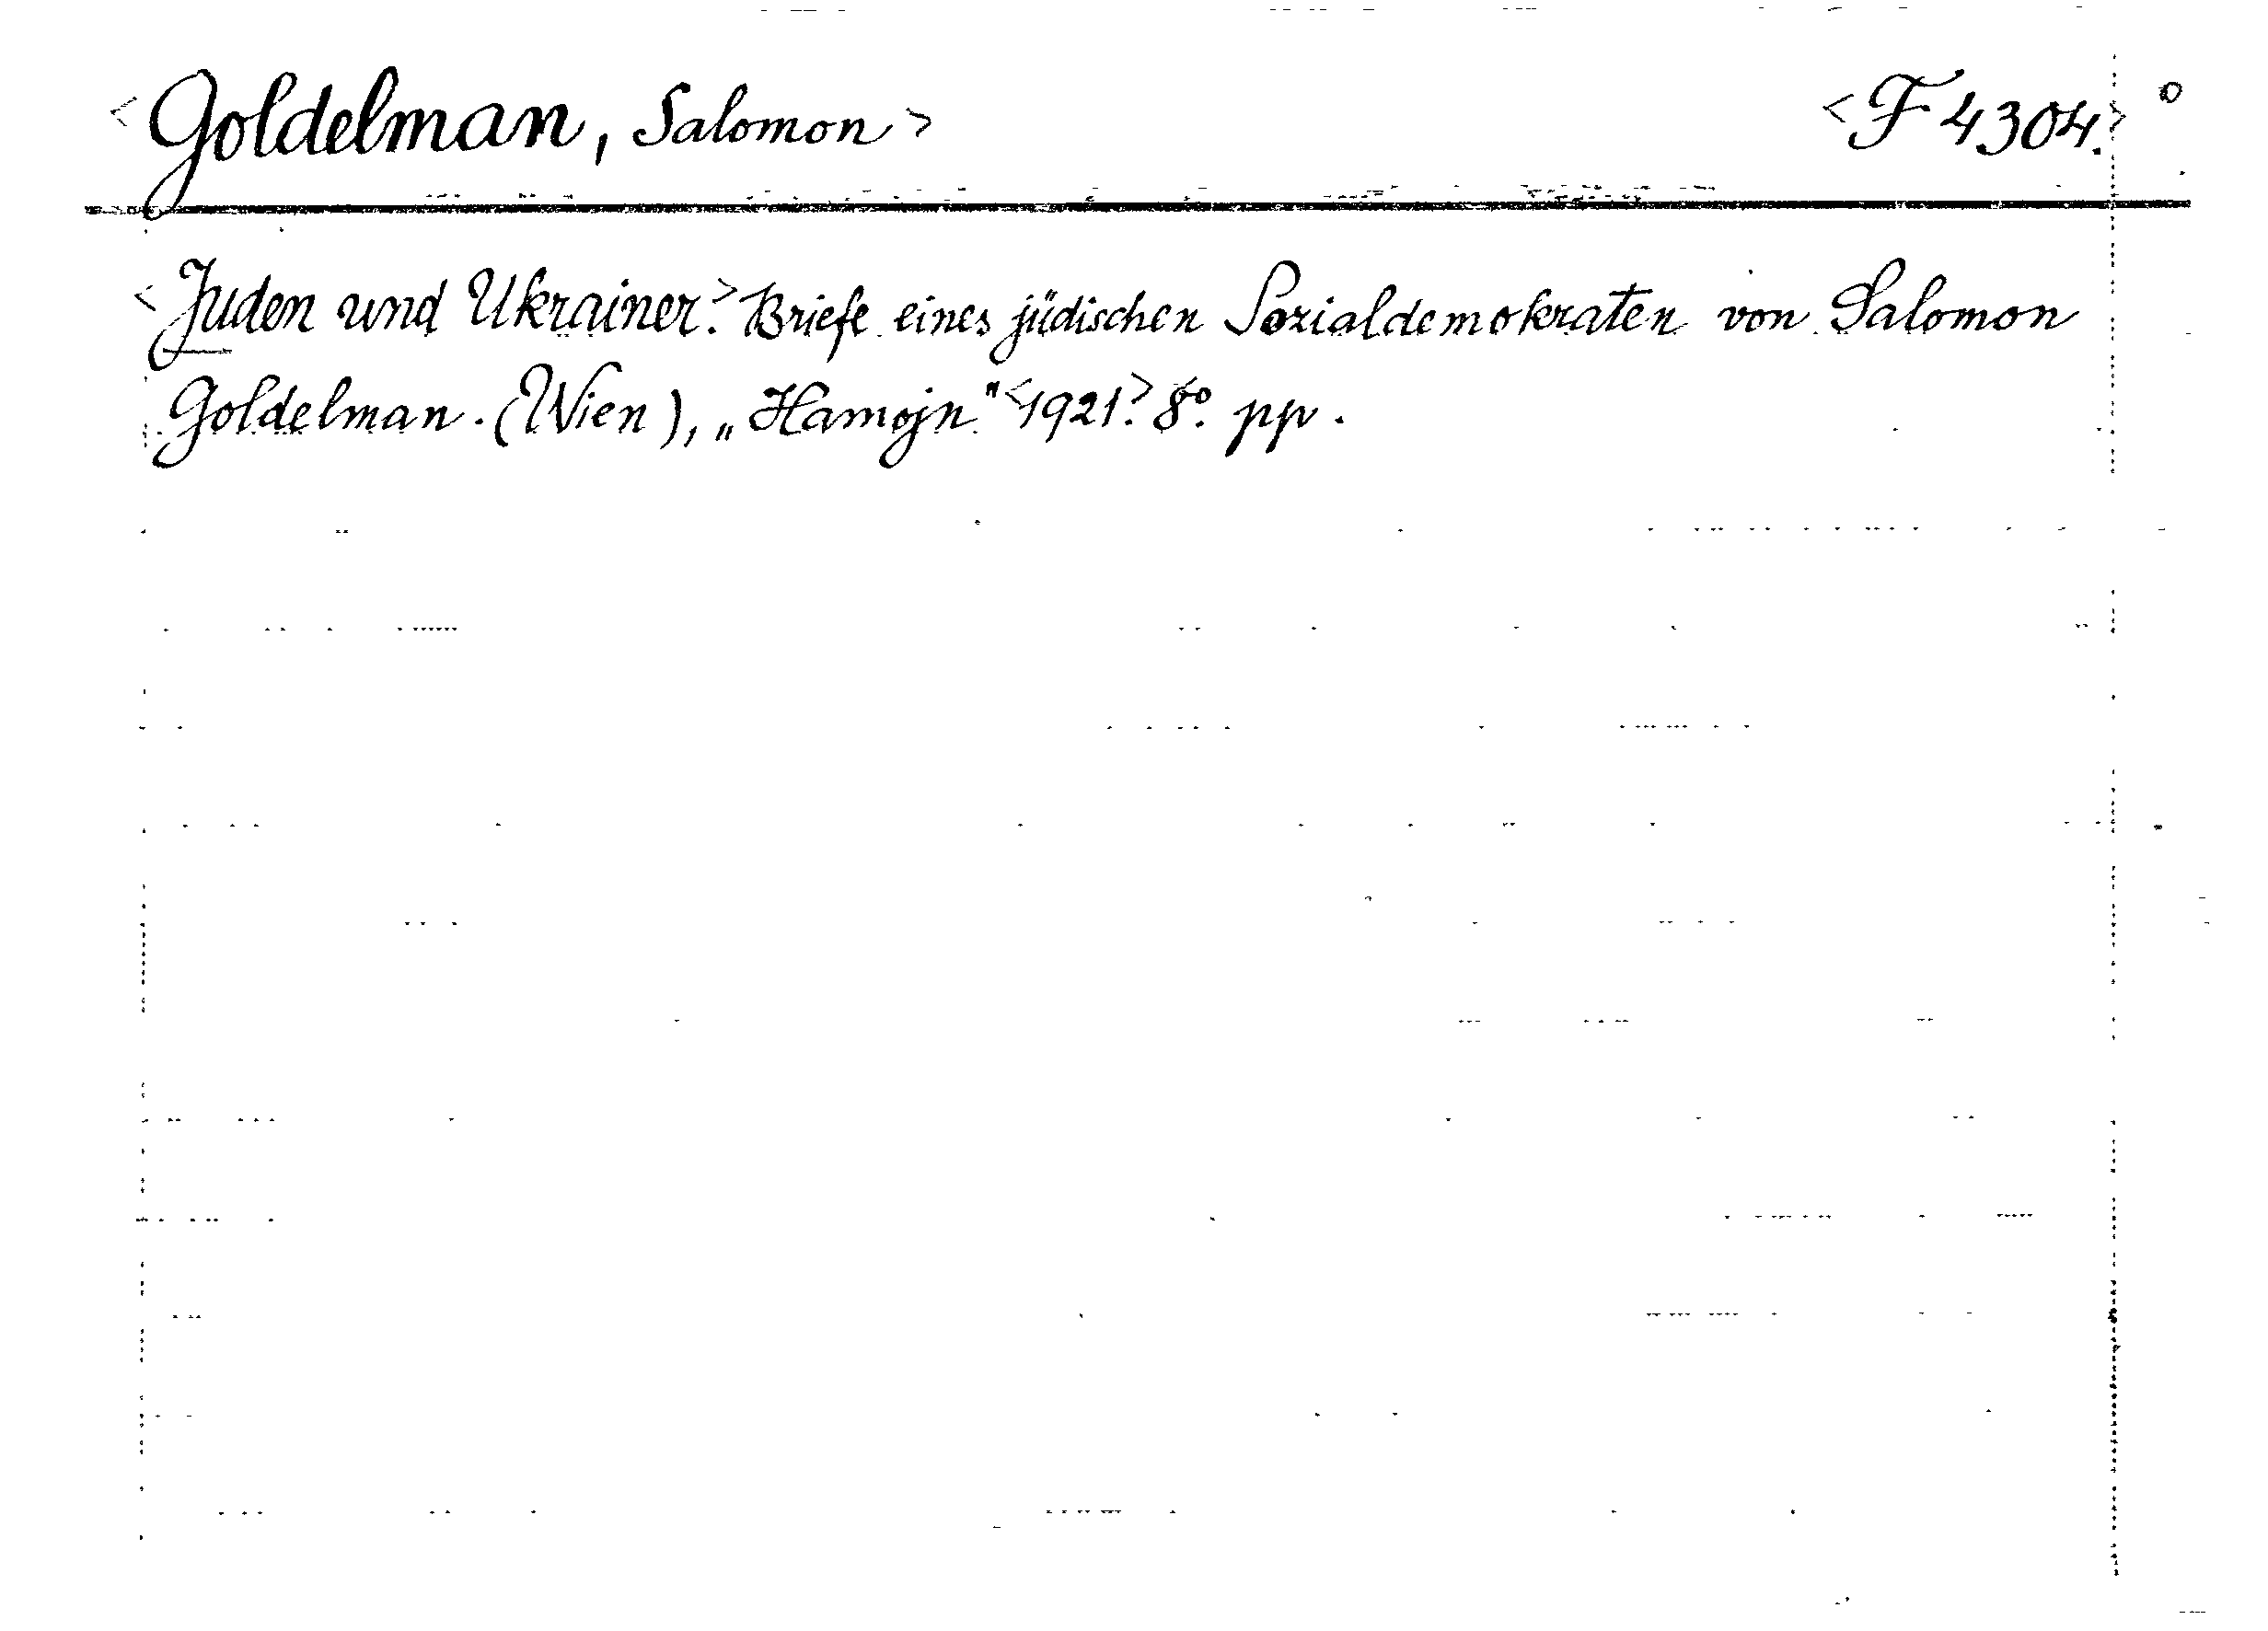 <Goldelman, Salomon> <F 4304.> o
<Juden und Ukrainer.> Briefe eines jüdischen Sozialdemokraten von Salomon
Goldelman. (Wien), „Hamojn" <1921.> 8°. pp.